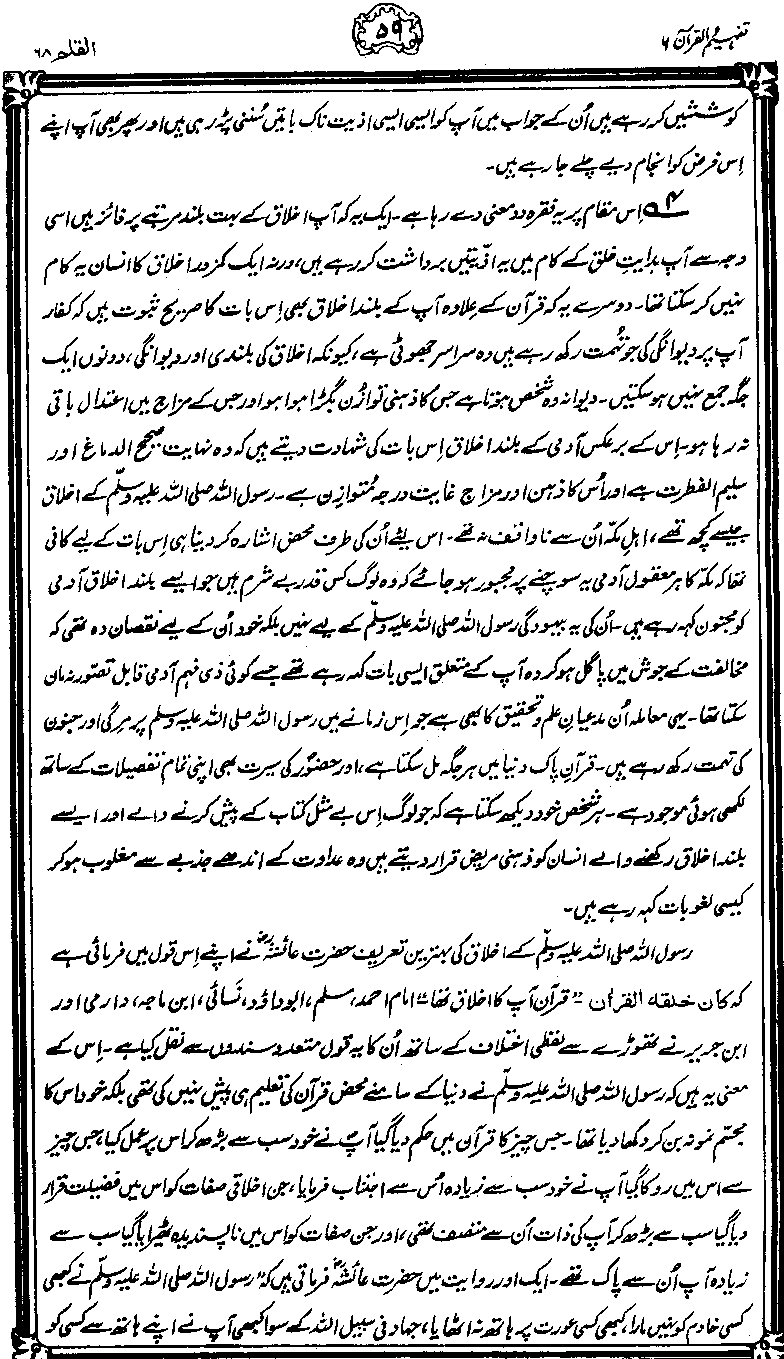 تفہیم القرآن ۶
۵۹
القلم ۶۸
کوششیں کر رہے ہیں اُن کے جواب میں آپ کو ایسی ایسی اذیت ناک باتیں سُننی پڑ رہی ہیں اور پھر بھی آپ اپنے
اِس فرض کو انجام دیے چلے جا رہے ہیں۔
۴؎ اِس مقام پر یہ فقرہ دو معنی دے رہا ہے۔ ایک یہ کہ آپ اخلاق کے بہت بلند مرتبے پر فائز ہیں اسی
وجہ سے آپ ہدایتِ خلق کے کام میں یہ اذیّتیں برداشت کر رہے ہیں، ورنہ ایک کمزور اخلاق کا انسان یہ کام
نہیں کر سکتا تھا۔ دوسرے یہ کہ قرآن کے علاوہ آپ کے بلند اخلاق بھی اِس بات کا صریح ثبوت ہیں کہ کفار
آپ پر دیوانگی کی جو تُہمت رکھ رہے ہیں وہ سراسر جھوٹی ہے، کیونکہ اخلاق کی بلندی اور دیوانگی، دونوں ایک
جگہ جمع نہیں ہو سکتیں۔ دیوانہ وہ شخص ہوتا ہے جس کا ذہنی توازُن بگڑا ہوا ہو اور جس کے مزاج میں اعتدال باقی
نہ رہا ہو۔ اِس کے برعکس آدمی کے بلند اخلاق اِس بات کی شہادت دیتے ہیں کہ وہ نہایت صحیح الدماغ اور
سلیم الفطرت ہے اور اُس کا ذہن اور مزاج غایت درجہ مُتوازِن ہے۔ رسول اللہ صلی اللہ علیہ وسلّم کے اخلاق
جیسے کچھ تھے، اہلِ مکّہ اُن سے ناواقف نہ تھے۔ اس لیے اُن کی طرف محض اشارہ کر دینا ہی اِس بات کے لیے کافی
تھا کہ مکّہ کا ہر معقول آدمی یہ سوچنے پر مجبور ہو جائے کہ وہ لوگ کس قدر بے شرم ہیں جو ایسے بلند اخلاق آدمی
کو مجنون کہہ رہے ہیں۔ اُن کی یہ بیہودگی رسول اللہ صلی اللہ علیہ وسلّم کے لیے نہیں بلکہ خود اُن کے لیے نقصان دہ تھی کہ
مخالفت کے جوش میں پاگل ہو کر وہ آپ کے متعلق ایسی بات کہہ رہے تھے جسے کوئی ذی فہم آدمی قابلِ تصوّر نہ مان
سکتا تھا۔ یہی معاملہ اُن مدعیانِ علم و تحقیق کا بھی ہے جو اِس زمانے میں رسول اللہ صلی اللہ علیہ وسلم پر مرگی اور جنون
کی تہمت رکھ رہے ہیں۔ قرآن پاک دنیا میں ہر جگہ مل سکتا ہے، اور حضورؐ کی سیرت بھی اپنی تمام تفصیلات کے ساتھ
لکھی ہوئی موجود ہے۔ ہر شخص خود دیکھ سکتا ہے کہ جو لوگ اِس بے مثل کتاب کے پیش کرنے والے اور ایسے
بلند اخلاق رکھنے والے انسان کو ذہنی مریض قرار دیتے ہیں وہ عداوت کے اندھے جذبے سے مغلوب ہو کر
کیسی لغو بات کہہ رہے ہیں۔
رسول اللہ صلی اللہ علیہ وسلّم کے اخلاق کی بہترین تعریف حضرت عائشہؓ نے اپنے اِس قول میں فرمائی ہے
کہ کان خلقه القرآن "قرآن آپ کا اخلاق تھا" امام احمد، مسلم، ابوداؤد، نَسائی، ابن ماجہ، دارمی اور
ابن جریر نے تھوڑے سے لفظی اختلاف کے ساتھ اُن کا یہ قول متعدد سندوں سے نقل کیا ہے۔ اِس کے
معنی یہ ہیں کہ رسول اللہ صلی اللہ علیہ وسلّم نے دنیا کے سامنے محض قرآن کی تعلیم ہی پیش نہیں کی تھی بلکہ خود اس کا
مجسّم نمونہ بن کر دکھا دیا تھا۔ جس چیز کا قرآن میں حکم دیا گیا آپؐ نے خود سب سے بڑھ کر اس پر عمل کیا، جس چیز
سے اس میں روکا گیا آپ نے خود سب سے زیادہ اُس سے اجتناب فرمایا، جن اخلاقی صفات کو اس میں فضیلت قرار
دیا گیا سب سے بڑھ کر آپ کی ذات اُن سے متصف تھی، اور جن صفات کو اس میں ناپسندیدہ ٹھیرایا گیا سب سے
زیادہ آپ اُن سے پاک تھے۔ ایک اور روایت میں حضرت عائشہؓ فرماتی ہیں کہ "رسول اللہ صلی اللہ علیہ وسلّم نے کبھی
کسی خادم کو نہیں مارا، کبھی کسی عورت پر ہاتھ نہ اٹھایا، جہاد فی سبیل اللہ کے سوا کبھی آپ نے اپنے ہاتھ سے کسی کو